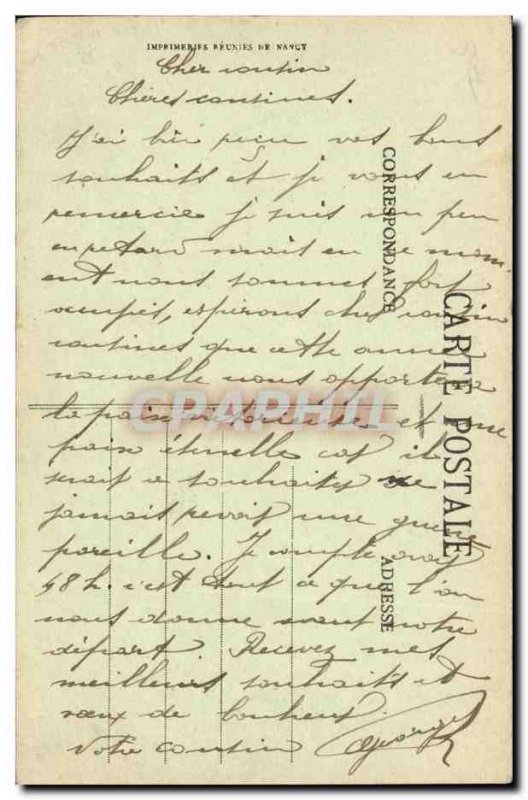 IMPRIMERIES RÉUNIES DE NANCY
Cher cousin
Chères cousines.
J'ai bien reçu vos bons
souhaits et je vous en
remercie je suis un peu
en retard mais en ce mom-
ent nous sommes fort
occupés, espérons cher cousin
cousines que cette année
nouvelle nous apportera
la paix victorieuse et une
paix éternelle car il
serait a souhaiter de ne
jamais revoir une guerre
pareille. Je compte avoir
48 h. c'est tout ce que l'on
nous donne avant notre
départ. Recevez mes
meilleurs souhaits et
vœux de bonheur.
Votre cousin Georges
CORRESPONDANCE
CARTE POSTALE
ADRESSE
CPAPHIL